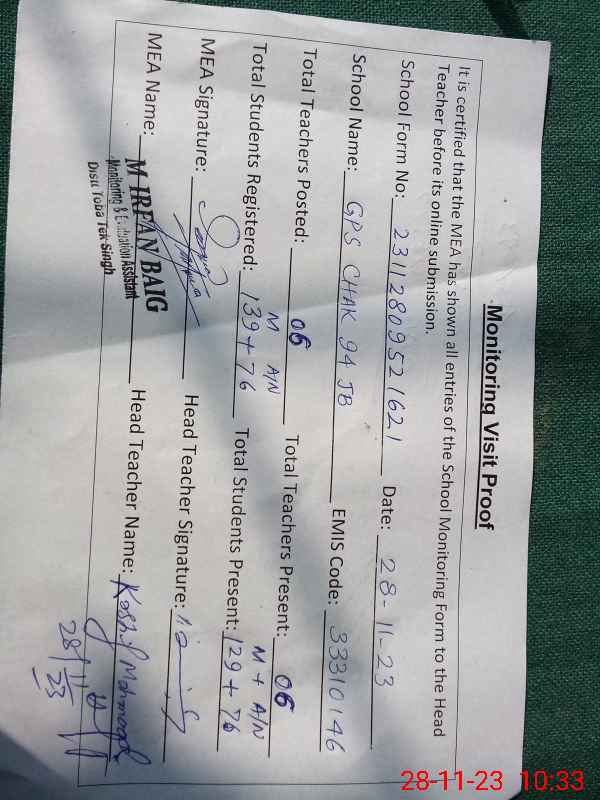 Monitoring Visit Proof
It is certified that the MEA has shown all entries of the School Monitoring Form to the Head
Teacher before its online submission.
School Form No: 2311280952 1621 Date: 28-11-23
School Name: GPS CHAK 94 JB EMIS Code: 33310146
Total Teachers Posted: 06 Total Teachers Present: 06
M A/N M + A/N
Total Students Registered: 139+76 Total Students Present: 129+76
MEA Signature: Head Teacher Signature:
MEA Name: M IRFAN BAIG Head Teacher Name: Kashif Mahmood
Monitoring & Evaluation Assistant
Distt Toba Tek Singh
28/11/23
28-11-23 10:33